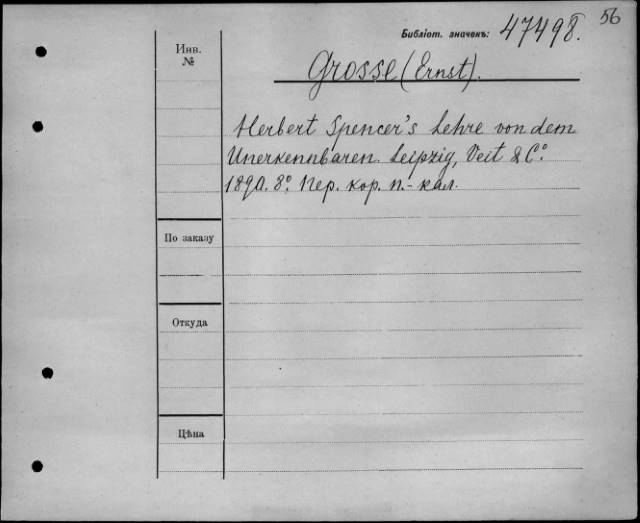 56
Библіот. значекъ: 47498.
Инв.
№
Grosse (Ernst).
Herbert Spencer's Lehre von dem
Unerkennbaren. Leipzig, Veit & Cº
1890. 8º. Пер. кор. п.-кал.
По заказу
Откуда
Цѣна